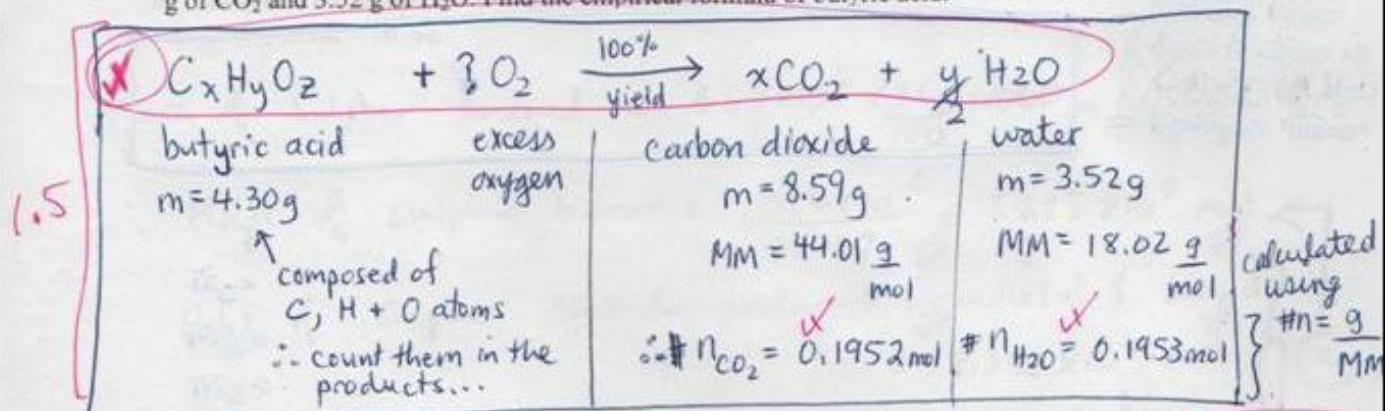 g of CO₂ and 3.52 g of H₂O. Find the empirical formula of butyric acid.
CxHyOz + ? O₂ 100% yield → xCO₂ + y/2 H₂O
butyric acid
m = 4.30g
↑
composed of
C, H + O atoms
∴ count them in the
products...
excess
oxygen
carbon dioxide
m = 8.59g
MM = 44.01 g/mol
∴ # n CO₂ = 0.1952 mol
water
m = 3.52g
MM = 18.02 g/mol
# n H₂O = 0.1953 mol
calculated
using
#n = g/MM
1.5